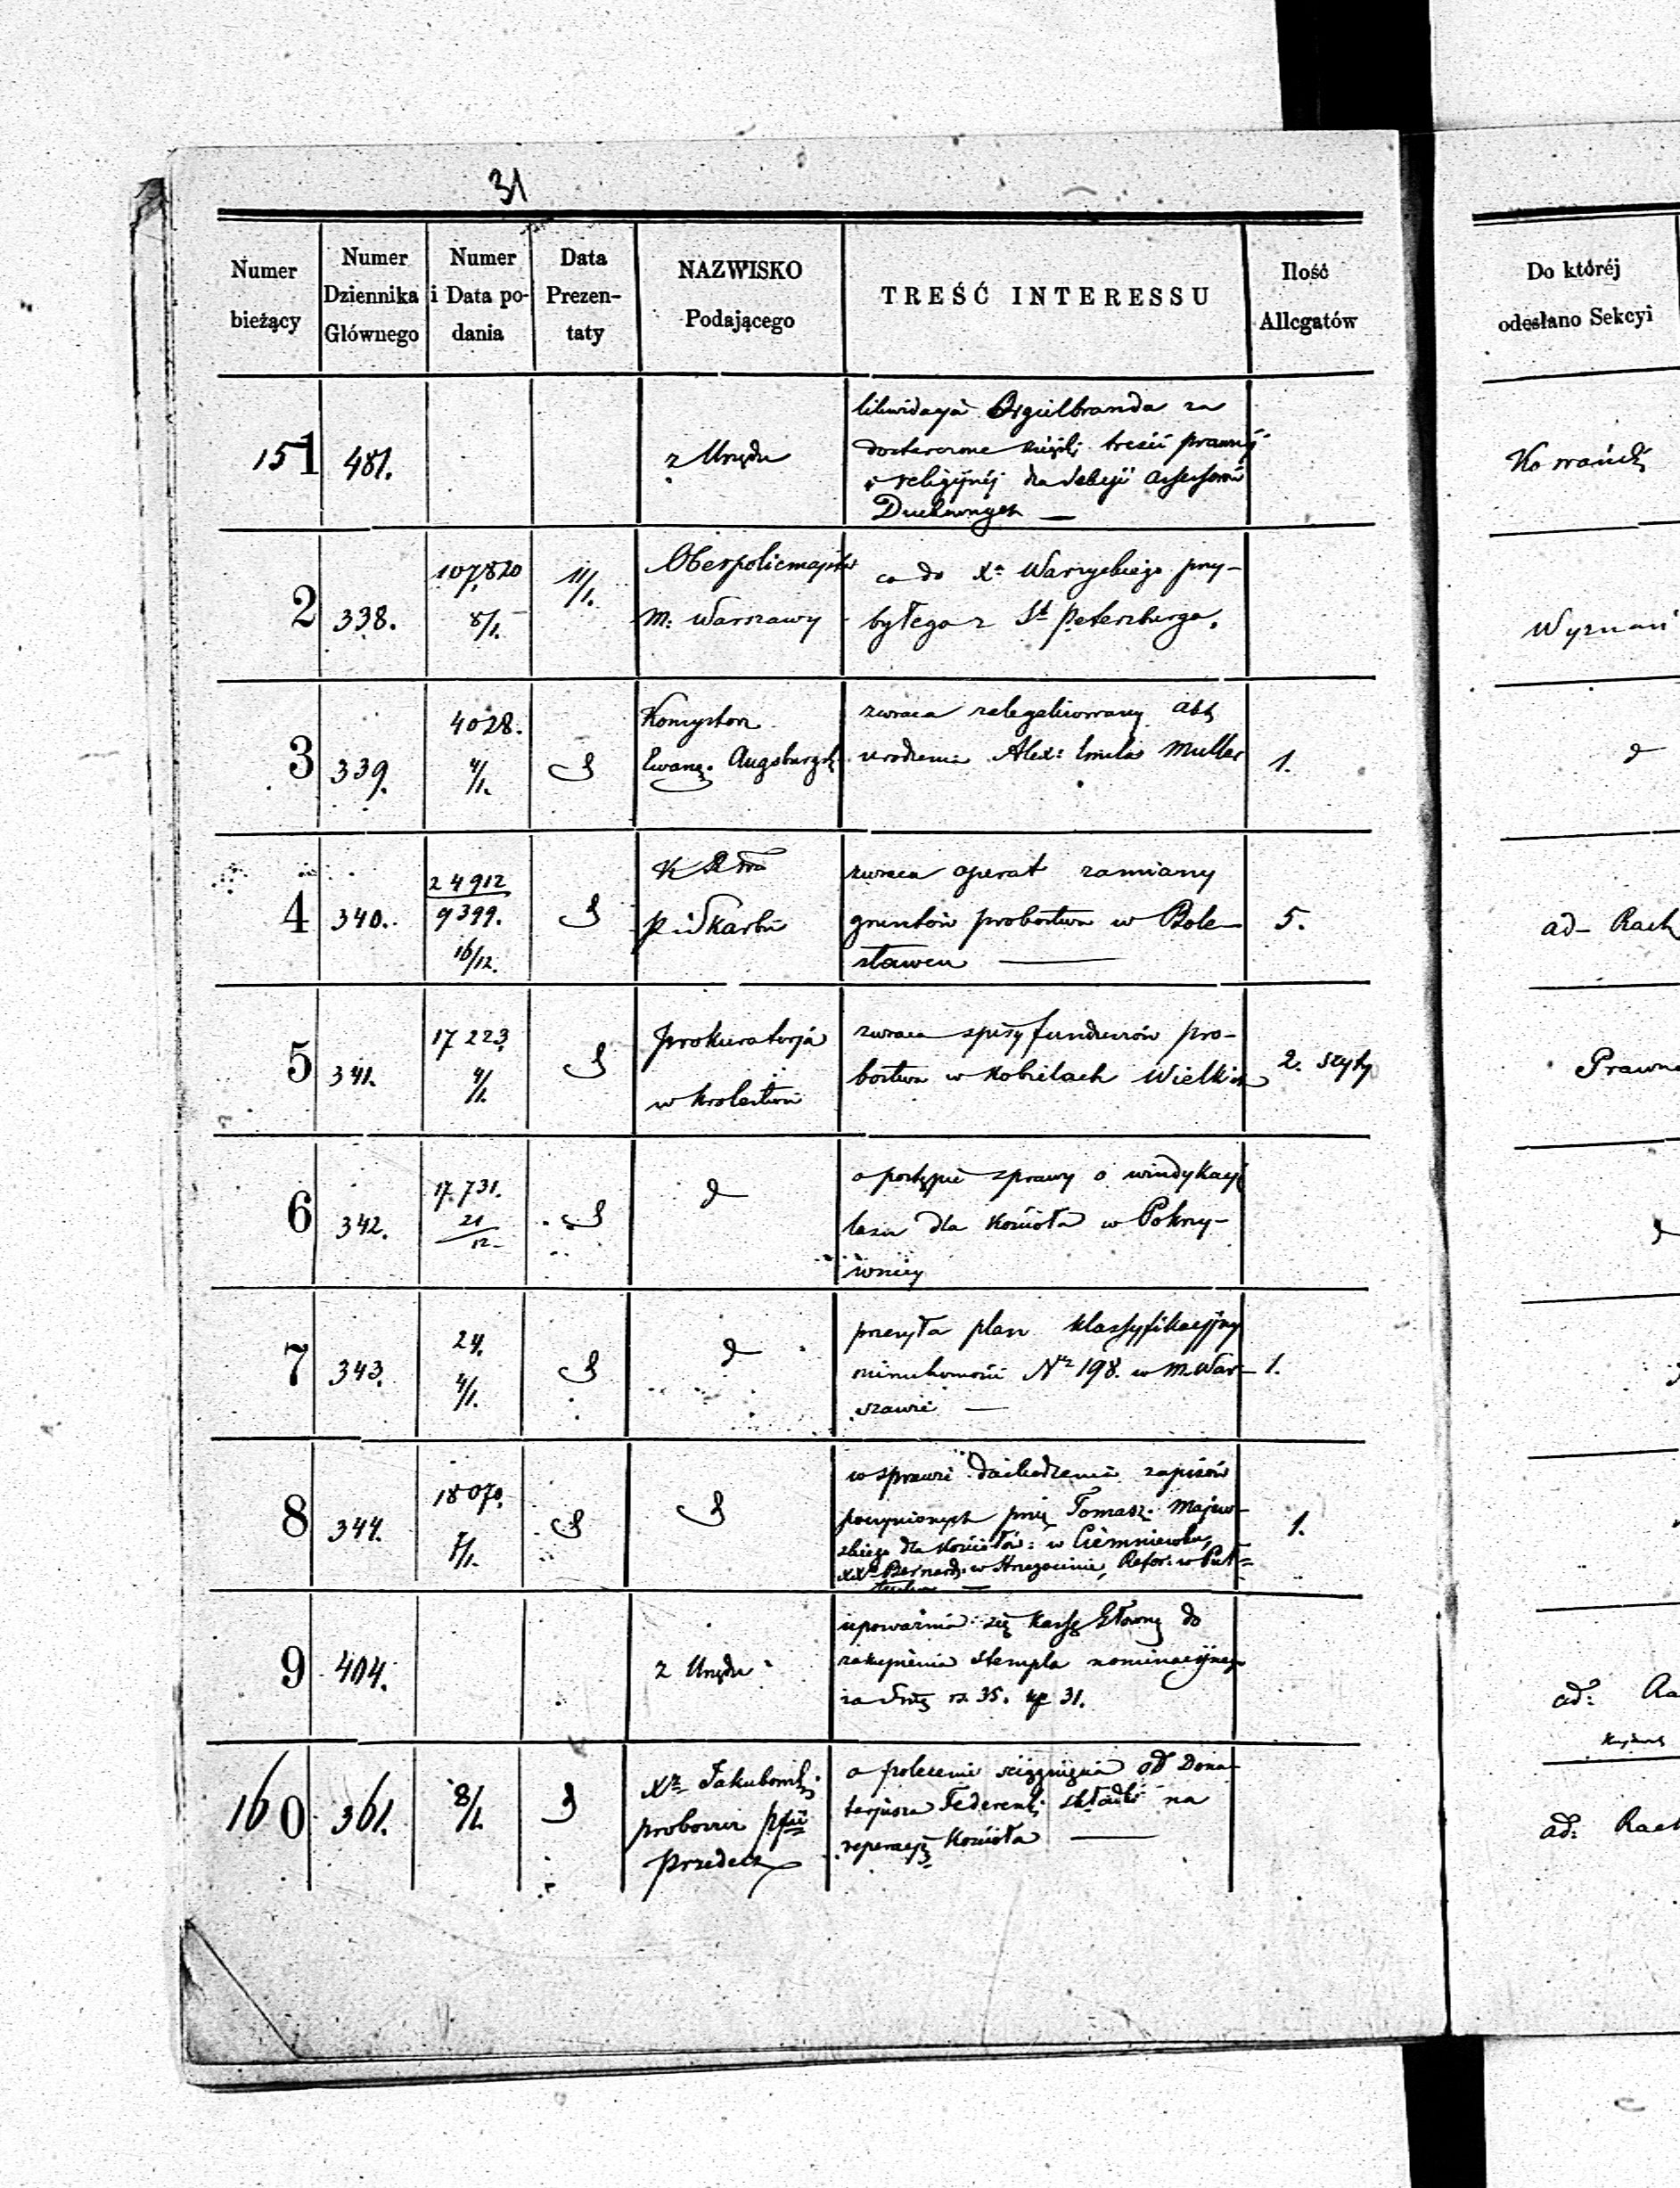 31
Numer bieżący | Numer Dziennika Głównego | Numer i Data podania | Data Prezentaty | NAZWISKO Podającego | TREŚĆ INTERESSU | Ilość Allegatów | Do któréj odesłano Sekcyi
151 | 481. | | | z Urzędu | likwidacya Orgielbranda za
dostarczone książki treści prawnéj
i religijnéj dla Sekcyi Assessorów
Duchownych —
2 | 338. | 107,820 8/1. | 11/1. | Oberpolicmajster
m. Warszawy | co do Xa Warzyckiego przy-
byłego z St Petersburga. | | Wyznań
3 | 339. | 4028. 4/1. | | Konsystorz
Ewang. Augsburgski | zwraca zalegalizowany akt
urodzenia Alex: Emila Muller | 1. | d
4 | 340. | 24912
9399.
16/12. | |
P. i Skarbu | zwraca operat zamiany
gruntów probostwa w Bole-
sławcu — | 5. | ad- Rach
5 | 341. | 17 223, 4/1. | | Prokuratorja
w Królestwie | zwraca spisy funduszów pro-
bostwa w Kobielach Wielkich | 2. szyty | Prawne
6 | 342. | 17.731. 21/12- | | d | o postępie sprawy o windykacyę
lasu dla Kościoła w Pokrzy-
wnicy | | d
7 | 343. | 24. 4/1. | | d | przesyła plan klassyfikacyjny
nieruchomości Nr 198. w m. War-
szawie — | 1.
8 | 344. | 18070, | | | w sprawie dochodzenia zapisów
poczynionych przez Tomasz. Majew-
skiego dla Kościołów: w Ciemniewku,
XX Bernard. w Strzegocinie, Refor: w Puł-
tusku — | 1.
9 | 404. | | | z Urzędu | upoważnia się Kassę Główną do
zakupienia stempla nominacyjnego
rs. 35. kp 31. | | ad: Ra
160 | 361. | 8/1. | | Xdz Jakubowski
proboszcz pfii
Przedecz | o polecenie ściągnięcia od Dona-
tarjusza Federenki składki na
reperacyę Kościoła — | | ad: Rach